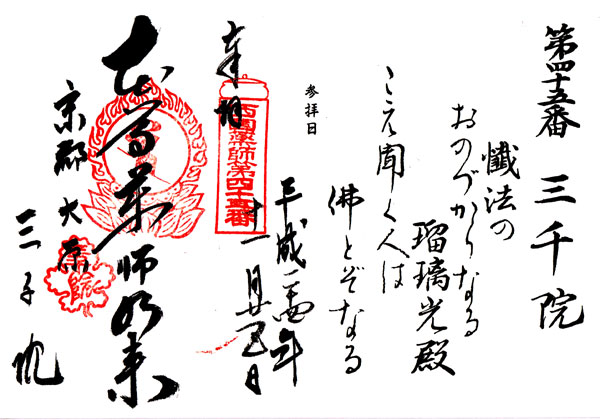 第四十五番 三千院
懺法の
おのづからなる
瑠璃光殿
こえ聞く人は
佛とぞなる
参拝日
平成二十四年
十一月廿五日
奉拝
西国薬師第四十五番
本尊薬師如来
京都大原
三千院